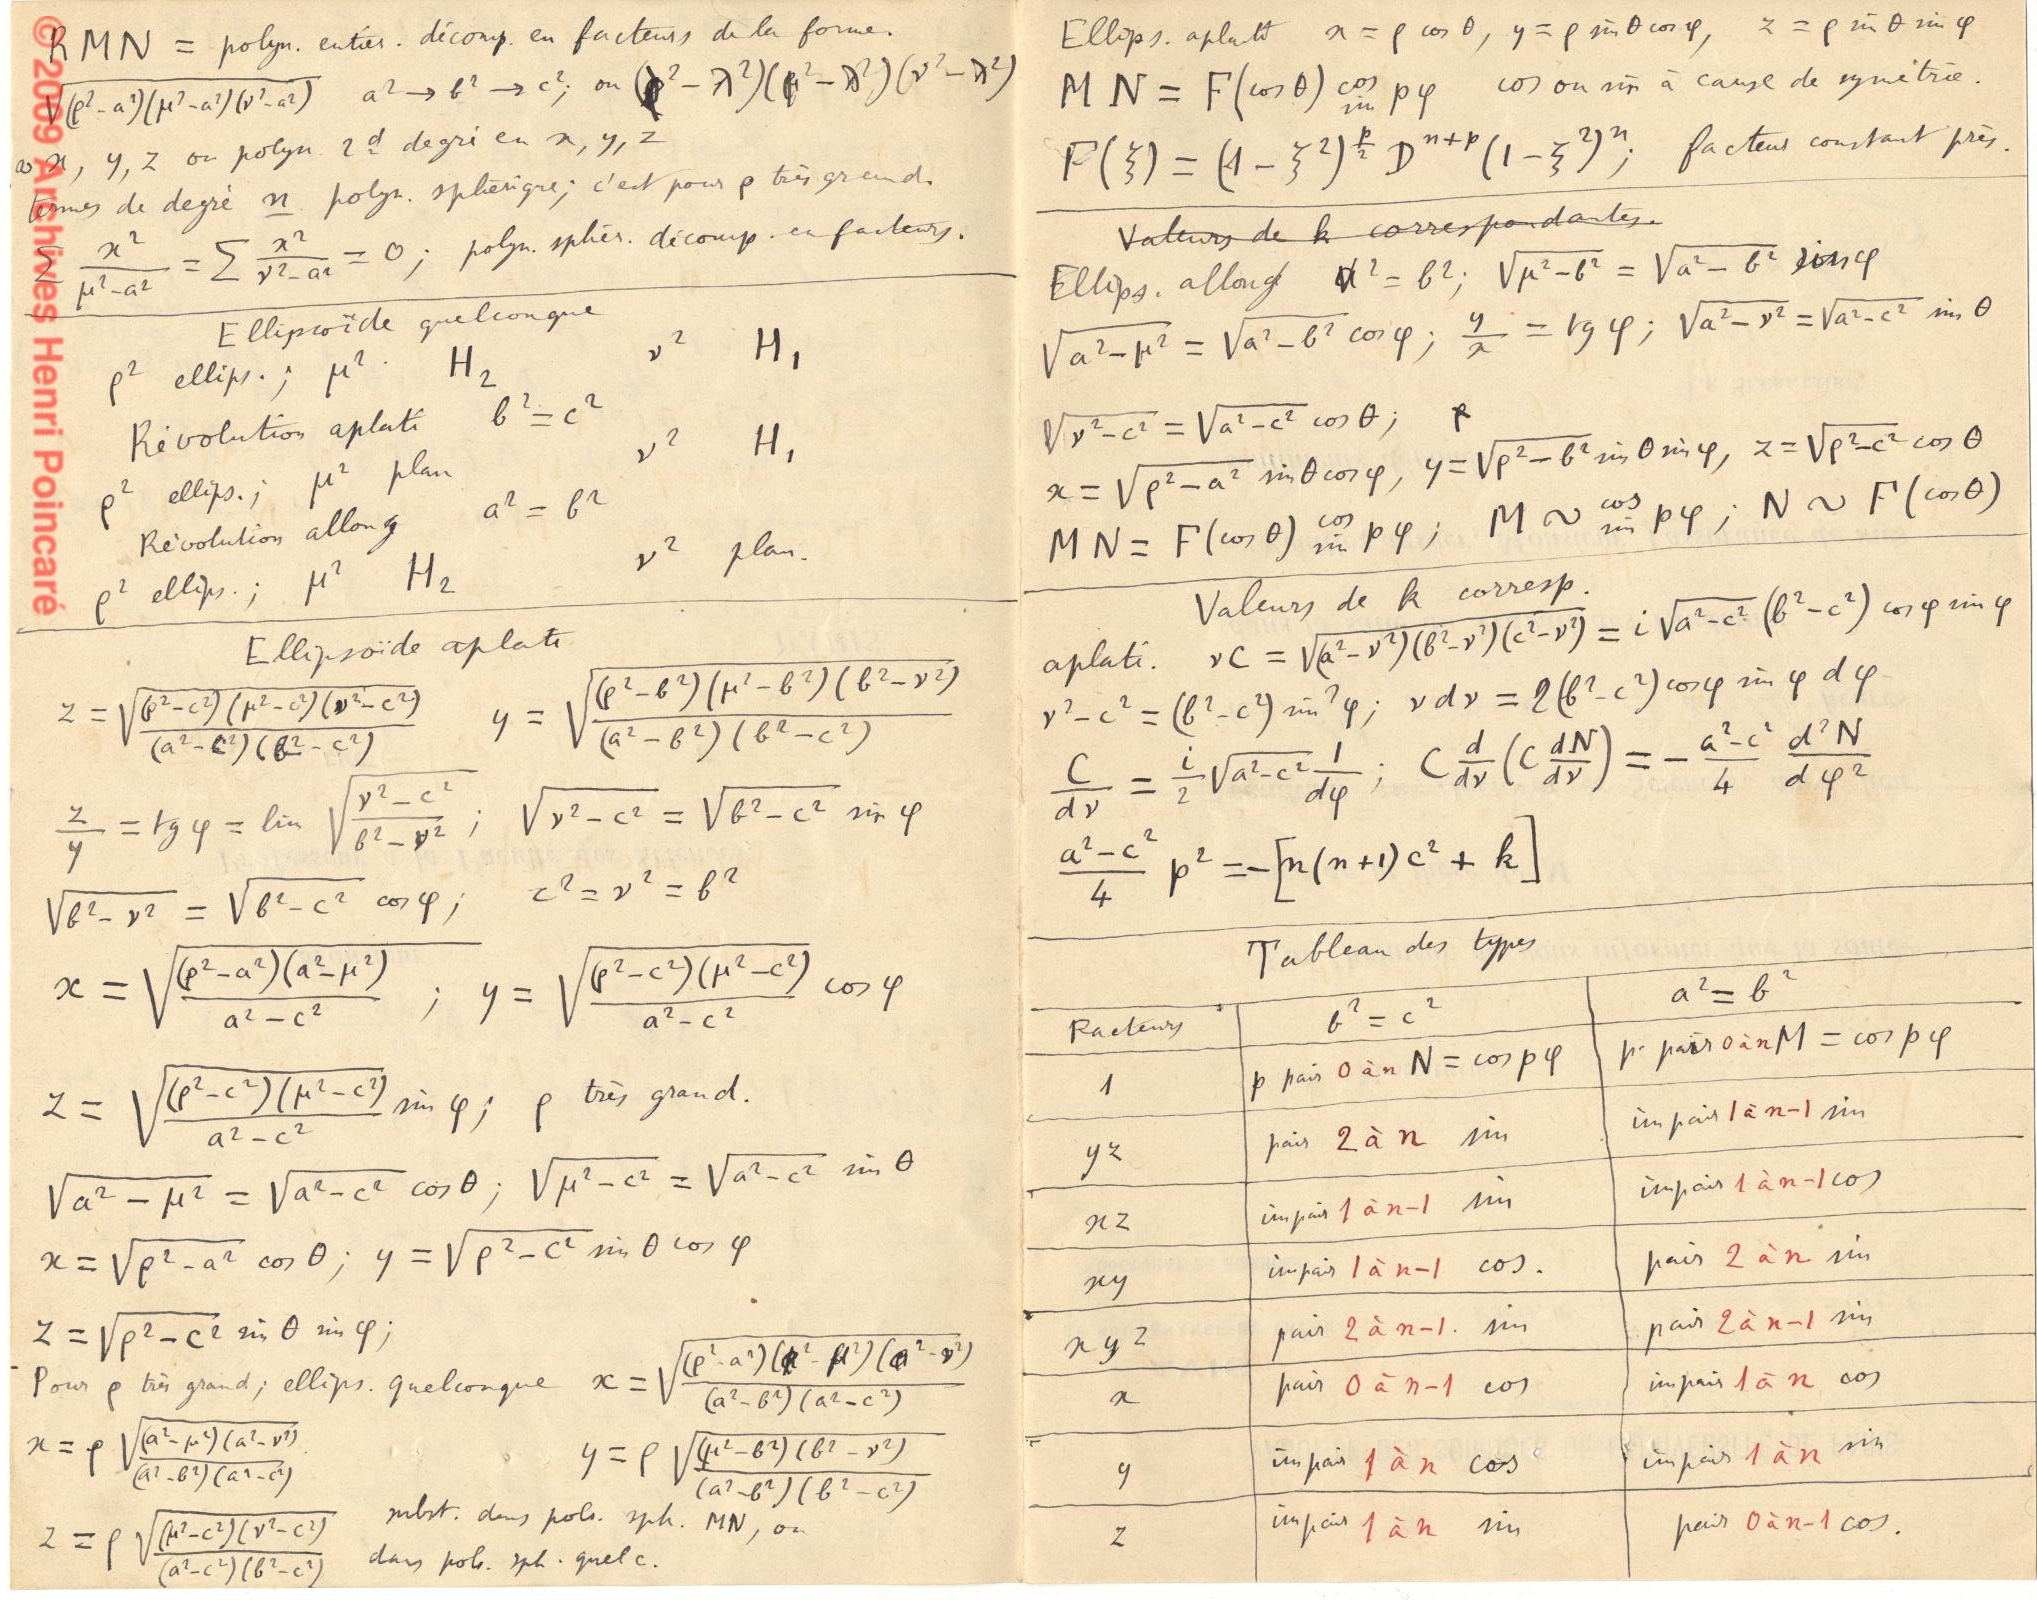 ©2009 Archives Henri Poincaré
RMN = polyn. entier. décomp. en facteurs de la forme.
√(ρ²-a²)(μ²-a²)(ν²-a²) a² → b² → c²; ou (ρ²-λ²)(μ²-λ²)(ν²-λ²)
∾ x, y, z ou polyn. 2d degré en x, y, z
termes de degré n polyn. sphérique; c'est pour ρ très grand.
∑ x²/(μ²-a²) = ∑ x²/(ν²-a²) = 0; polyn. sphér. décomp. en facteurs.
Ellipsoïde quelconque
ρ² ellips.; μ² H₂ ν² H₁
Révolution aplati b² = c²
ρ² ellips.; μ² plan ν² H₁
Révolution allong a² = b²
ρ² ellips.; μ² H₂ ν² plan.
Ellipsoïde aplati
z = √(ρ²-c²)(μ²-c²)(ν²-c²)/(a²-c²)(b²-c²) y = √(ρ²-b²)(μ²-b²)(b²-ν²)/(a²-b²)(b²-c²)
z/y = tg φ = lim √(ν²-c²)/(b²-ν²); √(ν²-c²) = √(b²-c²) sin φ
√(b²-ν²) = √(b²-c²) cos φ; c² = ν² = b²
x = √(ρ²-a²)(a²-μ²)/(a²-c²); y = √(ρ²-c²)(μ²-c²)/(a²-c²) cos φ
z = √(ρ²-c²)(μ²-c²)/(a²-c²) sin φ; ρ très grand.
√(a²-μ²) = √(a²-c²) cos θ; √(μ²-c²) = √(a²-c²) sin θ
x = √(ρ²-a²) cos θ; y = √(ρ²-c²) sin θ cos φ
z = √(ρ²-c²) sin θ sin φ;
Pour ρ très grand; ellips. quelconque x = √(ρ²-a²)(a²-μ²)(a²-ν²)/(a²-b²)(a²-c²)
x = ρ √(a²-μ²)(a²-ν²)/(a²-b²)(a²-c²) y = ρ √(μ²-b²)(b²-ν²)/(a²-b²)(b²-c²)
z = ρ √(μ²-c²)(ν²-c²)/(a²-c²)(b²-c²) subst. dans pols. sph. MN, ou
dans pols. sph. quelc.
Ellips. aplati x = ρ cos θ, y = ρ sin θ cos φ, z = ρ sin θ sin φ
MN = F(cos θ) cos/sin pφ cos ou sin à cause de symétrie.
F(ξ) = (1-ξ²)^(p/2) D^(n+p) (1-ξ²)^n; facteur constant près.
Valeurs de k correspondantes.
Ellips. allong a² = b²; √(μ²-b²) = √(a²-b²) sin φ
√(a²-μ²) = √(a²-b²) cos φ; y/x = tg φ; √(a²-ν²) = √(a²-c²) sin θ
√(ν²-c²) = √(a²-c²) cos θ; ρ
x = √(ρ²-a²) sin θ cos φ, y = √(ρ²-b²) sin θ sin φ, z = √(ρ²-c²) cos θ
MN = F(cos θ) cos/sin pφ; M ∾ cos/sin pφ; N ∾ F(cos θ)
Valeurs de k corresp.
aplati. νC = √(a²-ν²)(b²-ν²)(c²-ν²) = i √(a²-c²) (b²-c²) cos φ sin φ
ν²-c² = (b²-c²) sin²φ; ν dν = 2(b²-c²) cos φ sin φ dφ
C/dν = i/2 √(a²-c²) 1/dφ; C d/dν (C dN/dν) = - (a²-c²)/4 d²N/dφ²
(a²-c²)/4 p² = -[n(n+1)c² + k]
Tableau des types
Facteurs b² = c² a² = b²
1 p pair 0 à n N = cos pφ p pair 0 à n M = cos pφ
yz pair 2 à n sin impair 1 à n-1 sin
xz impair 1 à n-1 sin impair 1 à n-1 cos
xy impair 1 à n-1 cos. pair 2 à n sin
xyz pair 2 à n-1. sin pair 2 à n-1 sin
x pair 0 à n-1 cos impair 1 à n cos
y impair 1 à n cos impair 1 à n sin
z impair 1 à n sin pair 0 à n-1 cos.